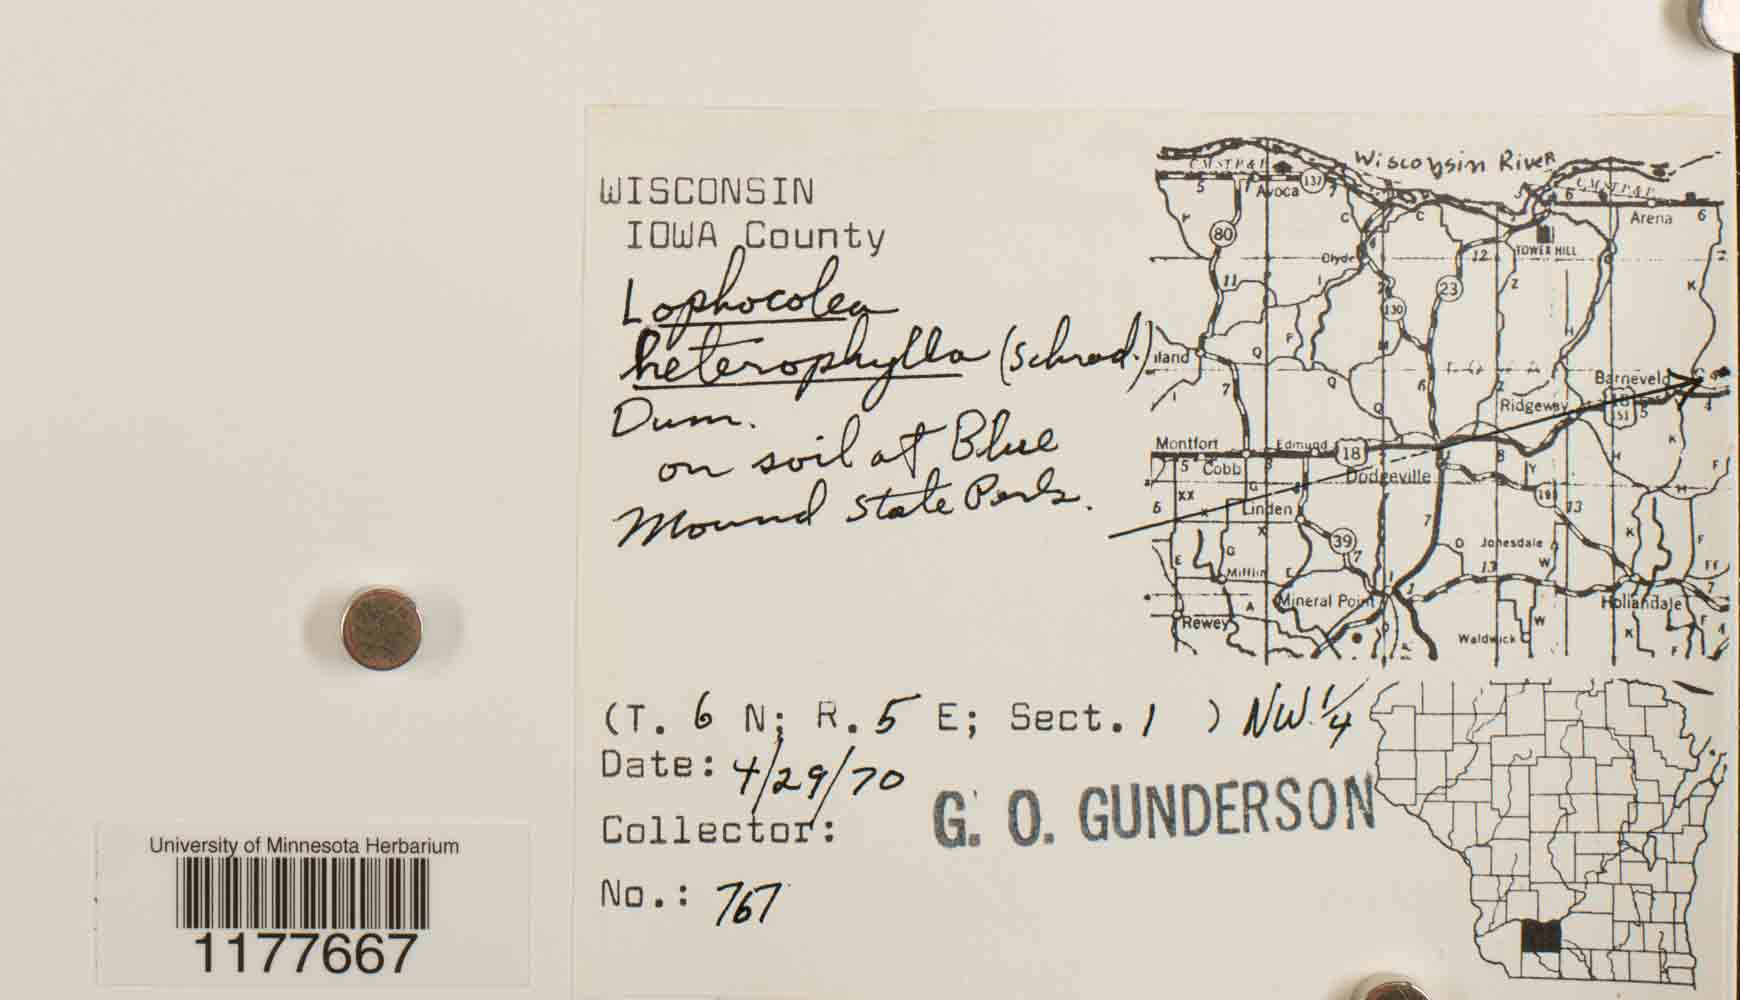 WISCONSIN
IOWA County
Lophocolea
heterophylla (Schrad.)
Dum.
on soil at Blue
Mound State Park.
(T. 6 N; R. 5 E; Sect. 1 ) NW 1/4
Date: 4/29/70
Collector: G. O. GUNDERSON
No.: 767
University of Minnesota Herbarium
1177667
Wisconsin River
C.M.ST.P.& P.
C.M.ST.P.& P.
5 Avoca 137 7
Arena 6
80
Clyde
12 TOWER HILL
11
23
130
iland
Barneveld
Ridgeway
151 5
Montfort
Edmund 18
Cobb
Dodgeville
191
Linden
13
39
Jonesdale
Mifflin
Mineral Point
Hollandale
Rewey
Waldwick